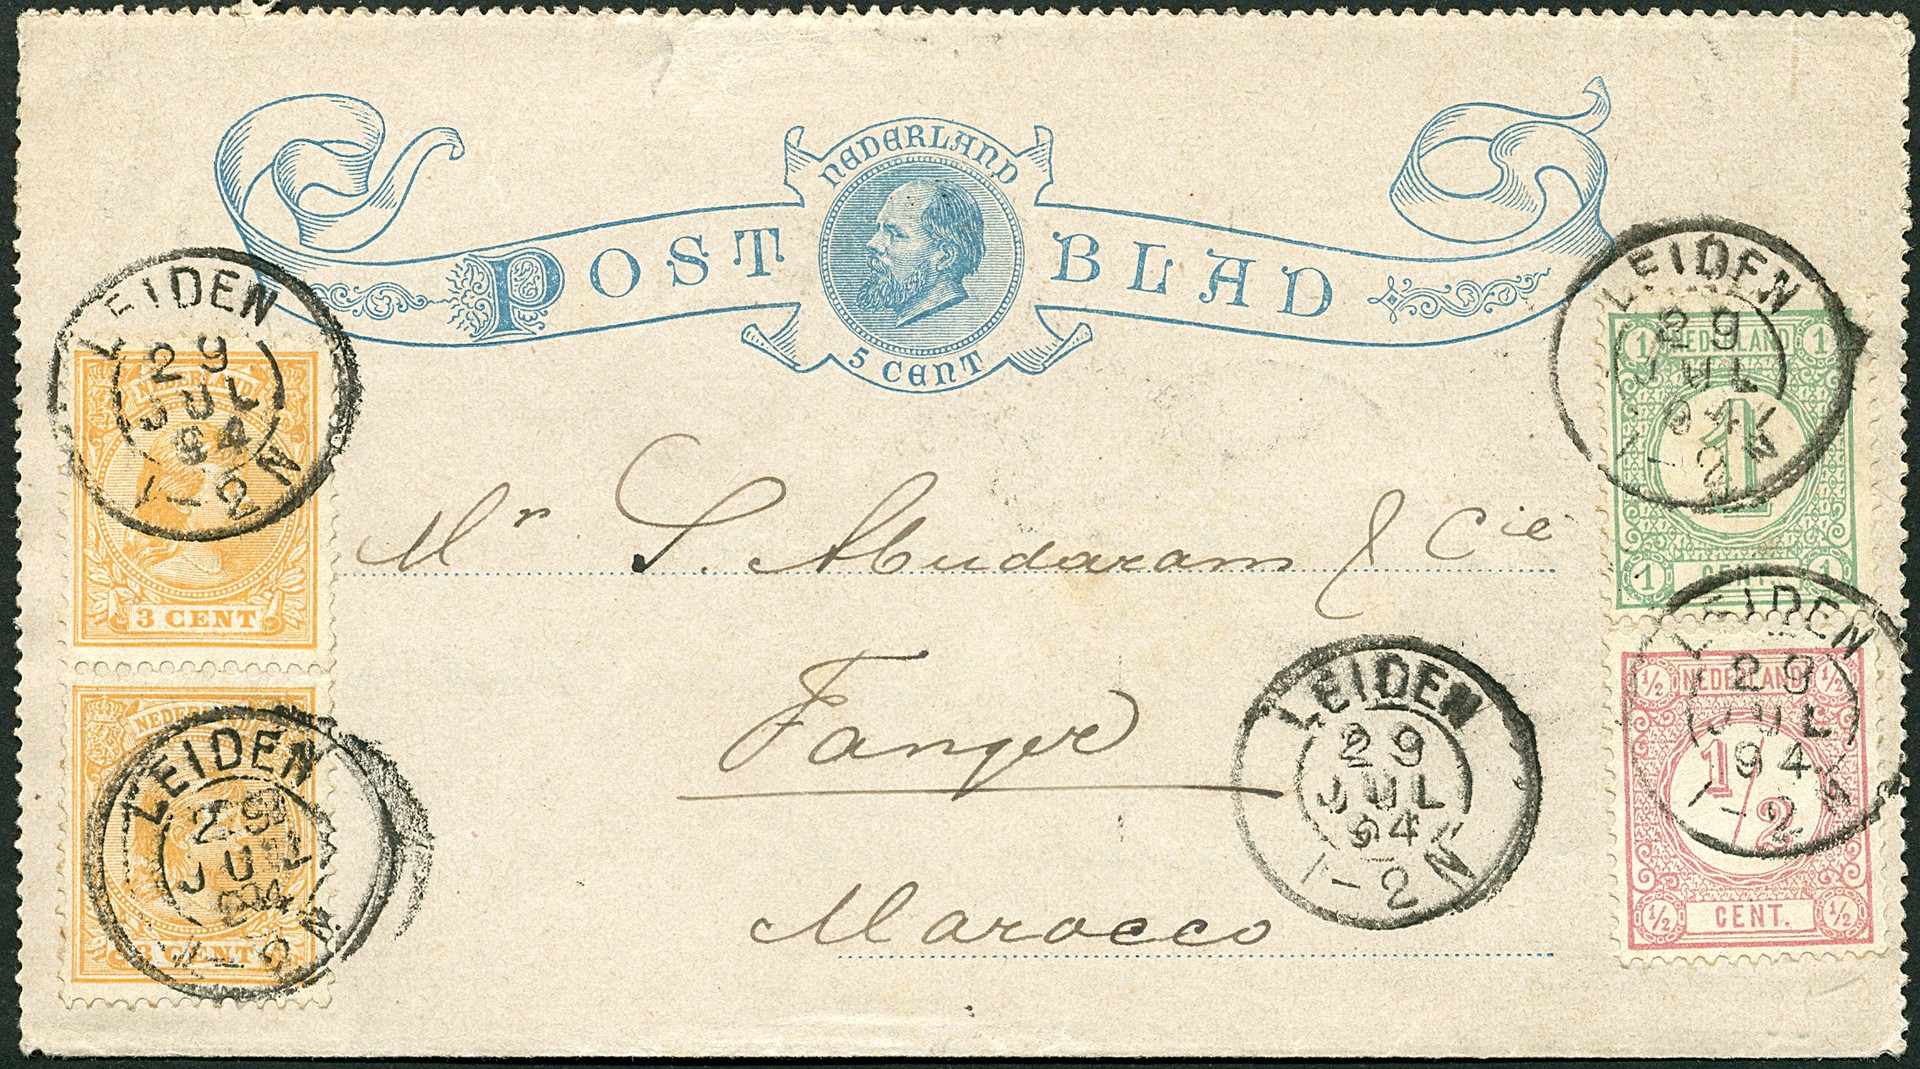 NEDERLAND
POST BLAD
5 CENT
LEIDEN
29
JUL
94
1-2 N
NEDERLAND
3 CENT
LEIDEN
29
JUL
94
1-2 N
NEDERLAND
3 CENT
LEIDEN
29
JUL
94
1-2 N
1 NEDERLAND 1
1
1 CENT. 1
LEIDEN
29
JUL
94
1-2 N
½ NEDERLAND ½
1/2
½ CENT. ½
Mr S. Abudaram & Cie
Tanger
Marocco
LEIDEN
29
JUL
94
1-2 N